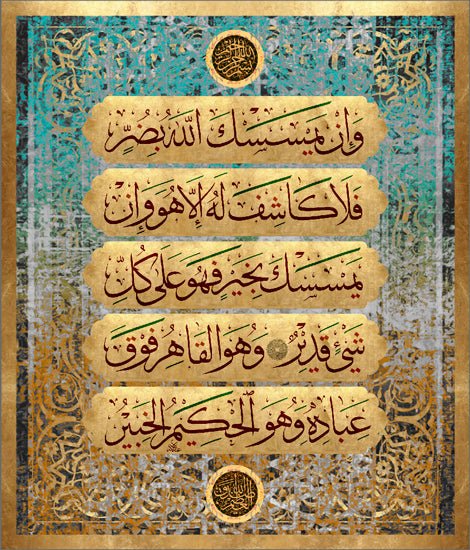 وَإِن يَمْسَسْكَ اللَّهُ بِضُرٍّ
فَلَا كَاشِفَ لَهُ إِلَّا هُوَ وَإِنْ
يَمْسَسْكَ بِخَيْرٍ فَهُوَ عَلَى كُلِّ
شَيْءٍ قَدِيرٌ وَهُوَ الْقَاهِرُ فَوْقَ
عِبَادِهِ وَهُوَ الْحَكِيمُ الْخَبِيرُ